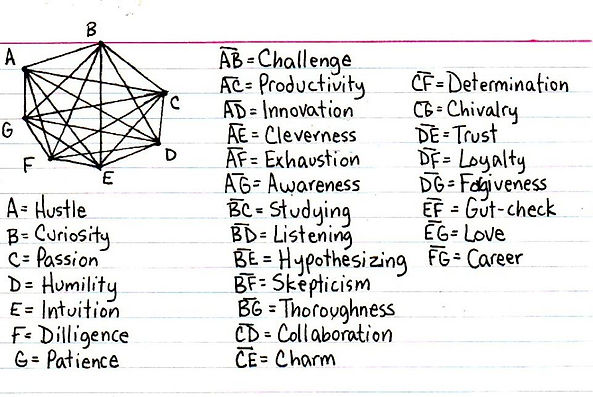 B
A
C
G
D
F
E
A = Hustle
B = Curiosity
C = Passion
D = Humility
E = Intuition
F = Dilligence
G = Patience
AB = Challenge
AC = Productivity
AD = Innovation
AE = Cleverness
AF = Exhaustion
AG = Awareness
BC = Studying
BD = Listening
BE = Hypothesizing
BF = Skepticism
BG = Thoroughness
CD = Collaboration
CE = Charm
CF = Determination
CG = Chivalry
DE = Trust
DF = Loyalty
DG = Fogiveness
EF = Gut-check
EG = Love
FG = Career